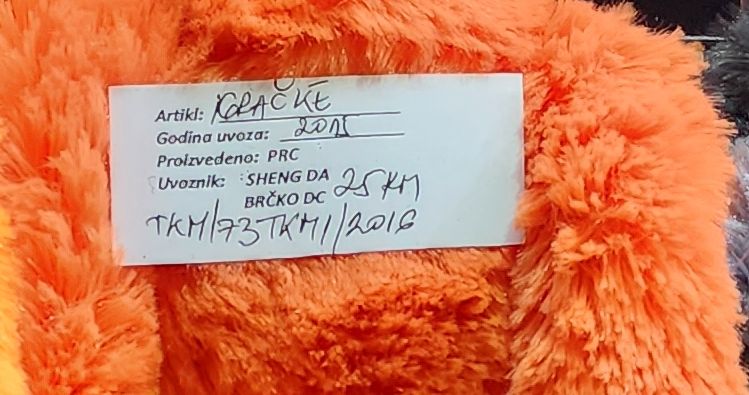 Artikl: IGRAČKE
Godina uvoza: 2015
Proizvedeno: PRC
Uvoznik: SHENG DA 25 KM
BRČKO DC
TKM/73TKM1/2016